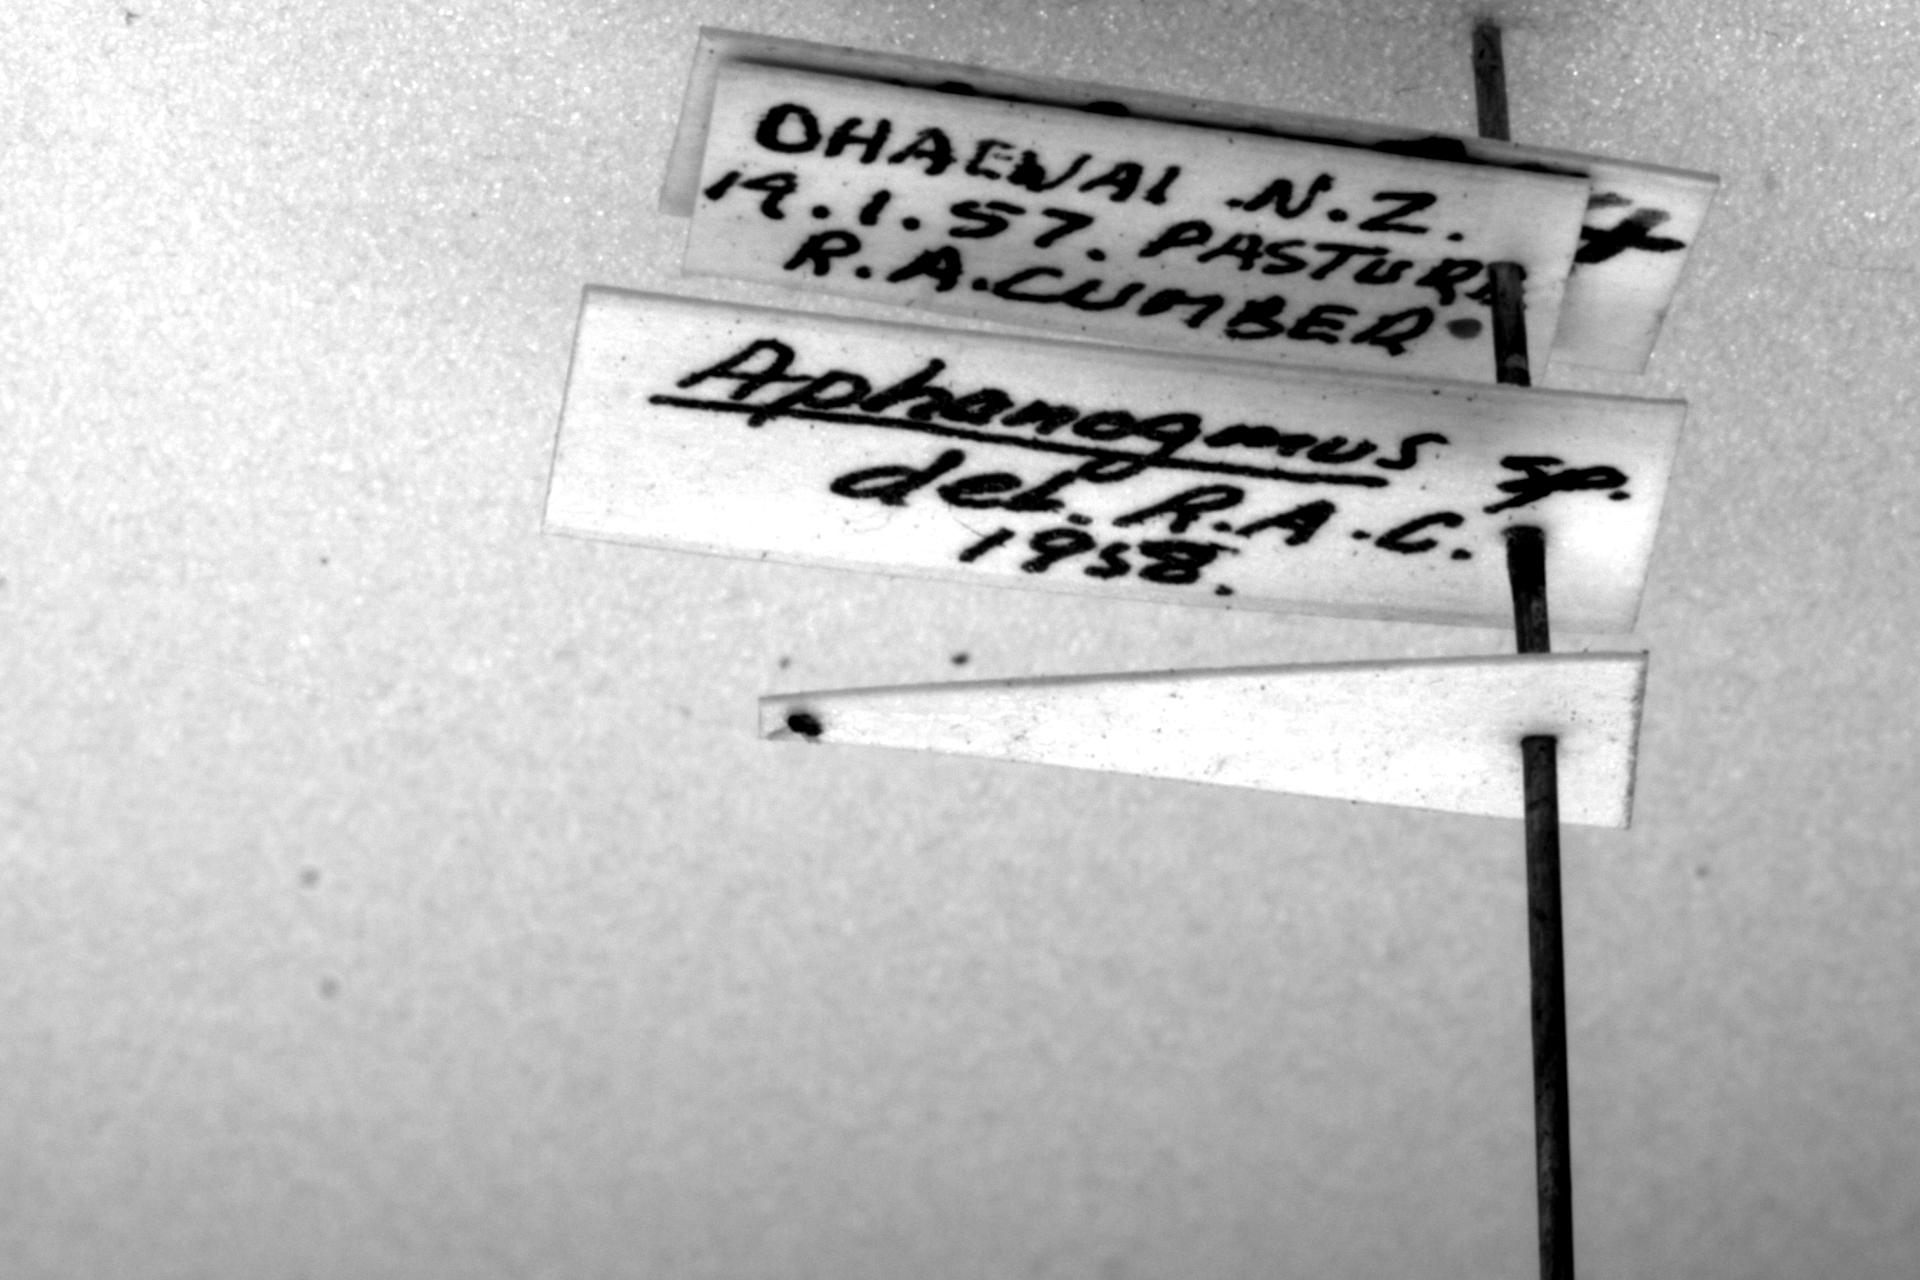 OHAEWAI N.Z.
19.1.57. PASTURE
R.A.CUMBER
Aphanogmus sp.
det. R.A.C.
1958.